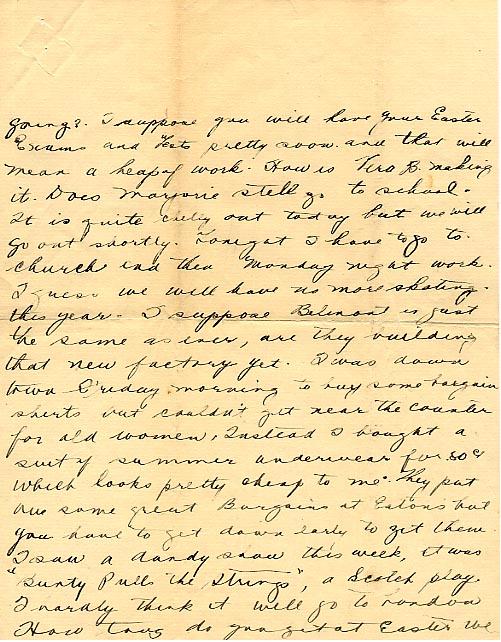 going? I suppose you will have your Easter
Exams and Tests pretty soon and that will
mean a heap of work. How is B. making
it. Does Marjorie still go to school.
It is quite out today but we will
go out shortly. Tonight I have to go to
church and then Monday night work.
I guess we will have no more skating
this year. I suppose Belmont is just
the same as ever, are they building
that new factory yet. I was down
town Friday morning to buy some bargain
shirts but couldn't get near the counter
for old women, Instead I bought a
suit of summer underwear for 80¢
which looks pretty cheap to me. They put
on some great Bargains at Eatons but
you have to get down early to get them.
I saw a dandy show this week, it was
"Bunty Pulls the Strings", a Scotch play.
I hardly think it will go to London
How long do you get at Easter We